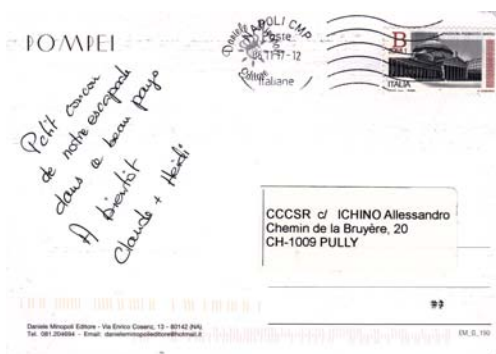 POMPEI
NAPOLI CMP
Poste
Italiane
B
ITALIA
Petit coucou
de notre escapade
dans ce beau pays
A bientôt
Claude + Heidi
CCCSR c/ ICHINO Allessandro
Chemin de la Bruyère, 20
CH-1009 PULLY
Daniele Minopoli Editore - Via Enrico Cosenz, 13 - 80142 (NA)
Tel. 081.204694 - Email: danieleminopolieditore@hotmail.it